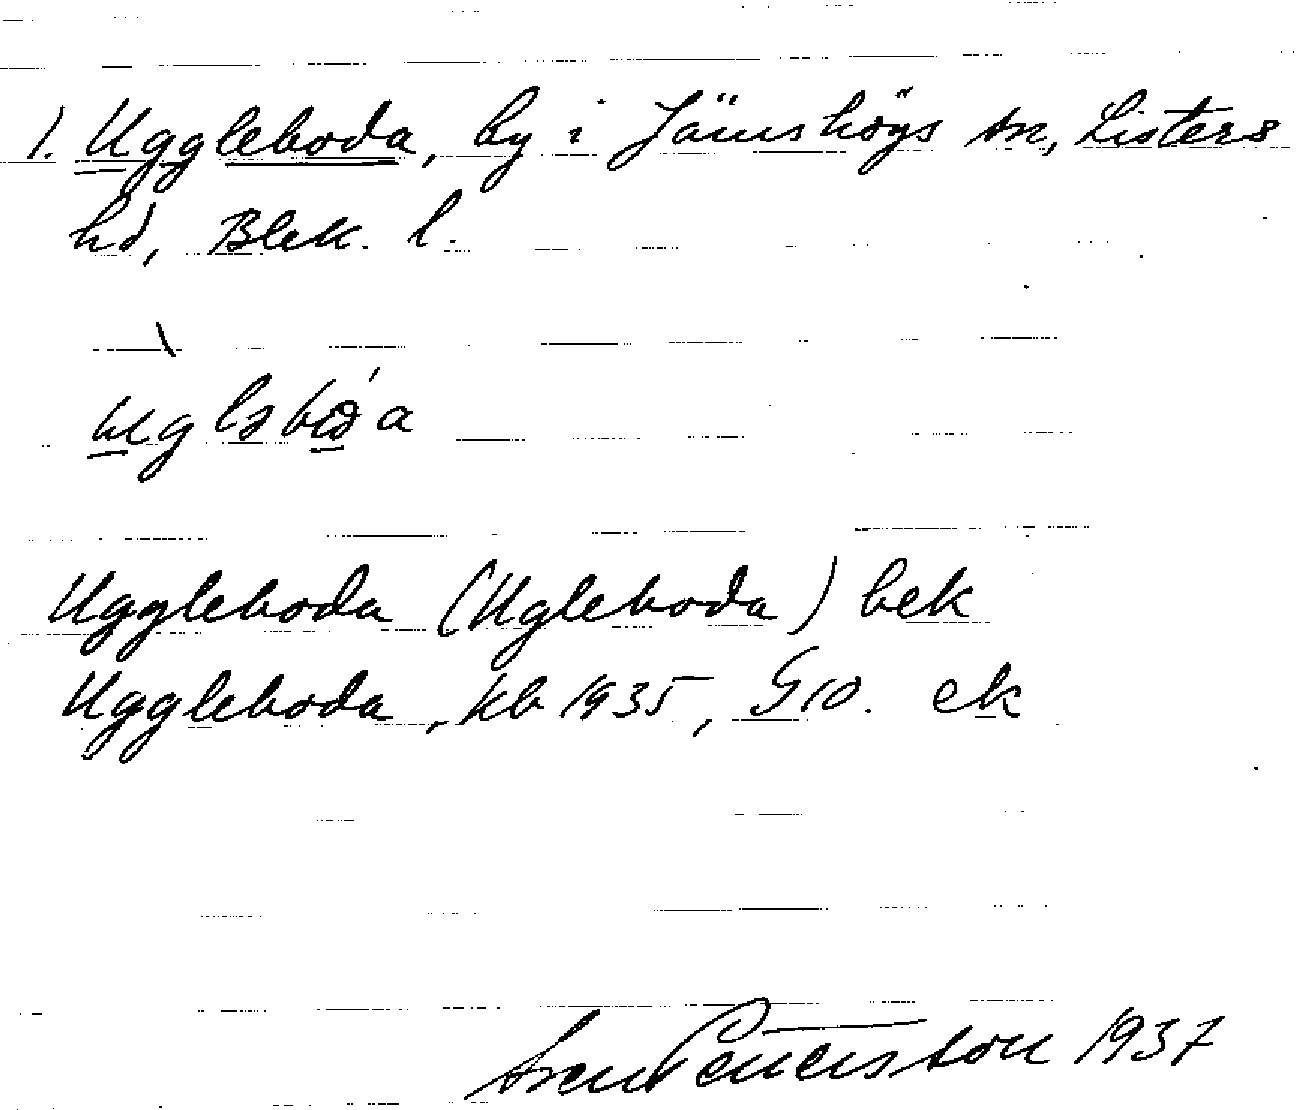 1. Uggleboda, by i Jämshögs sn, Listers
hd, Blek. l.
Uggleboda (Ugleboda) bek
Uggleboda, kb 1935, G10. ek
Sven Benson 1937